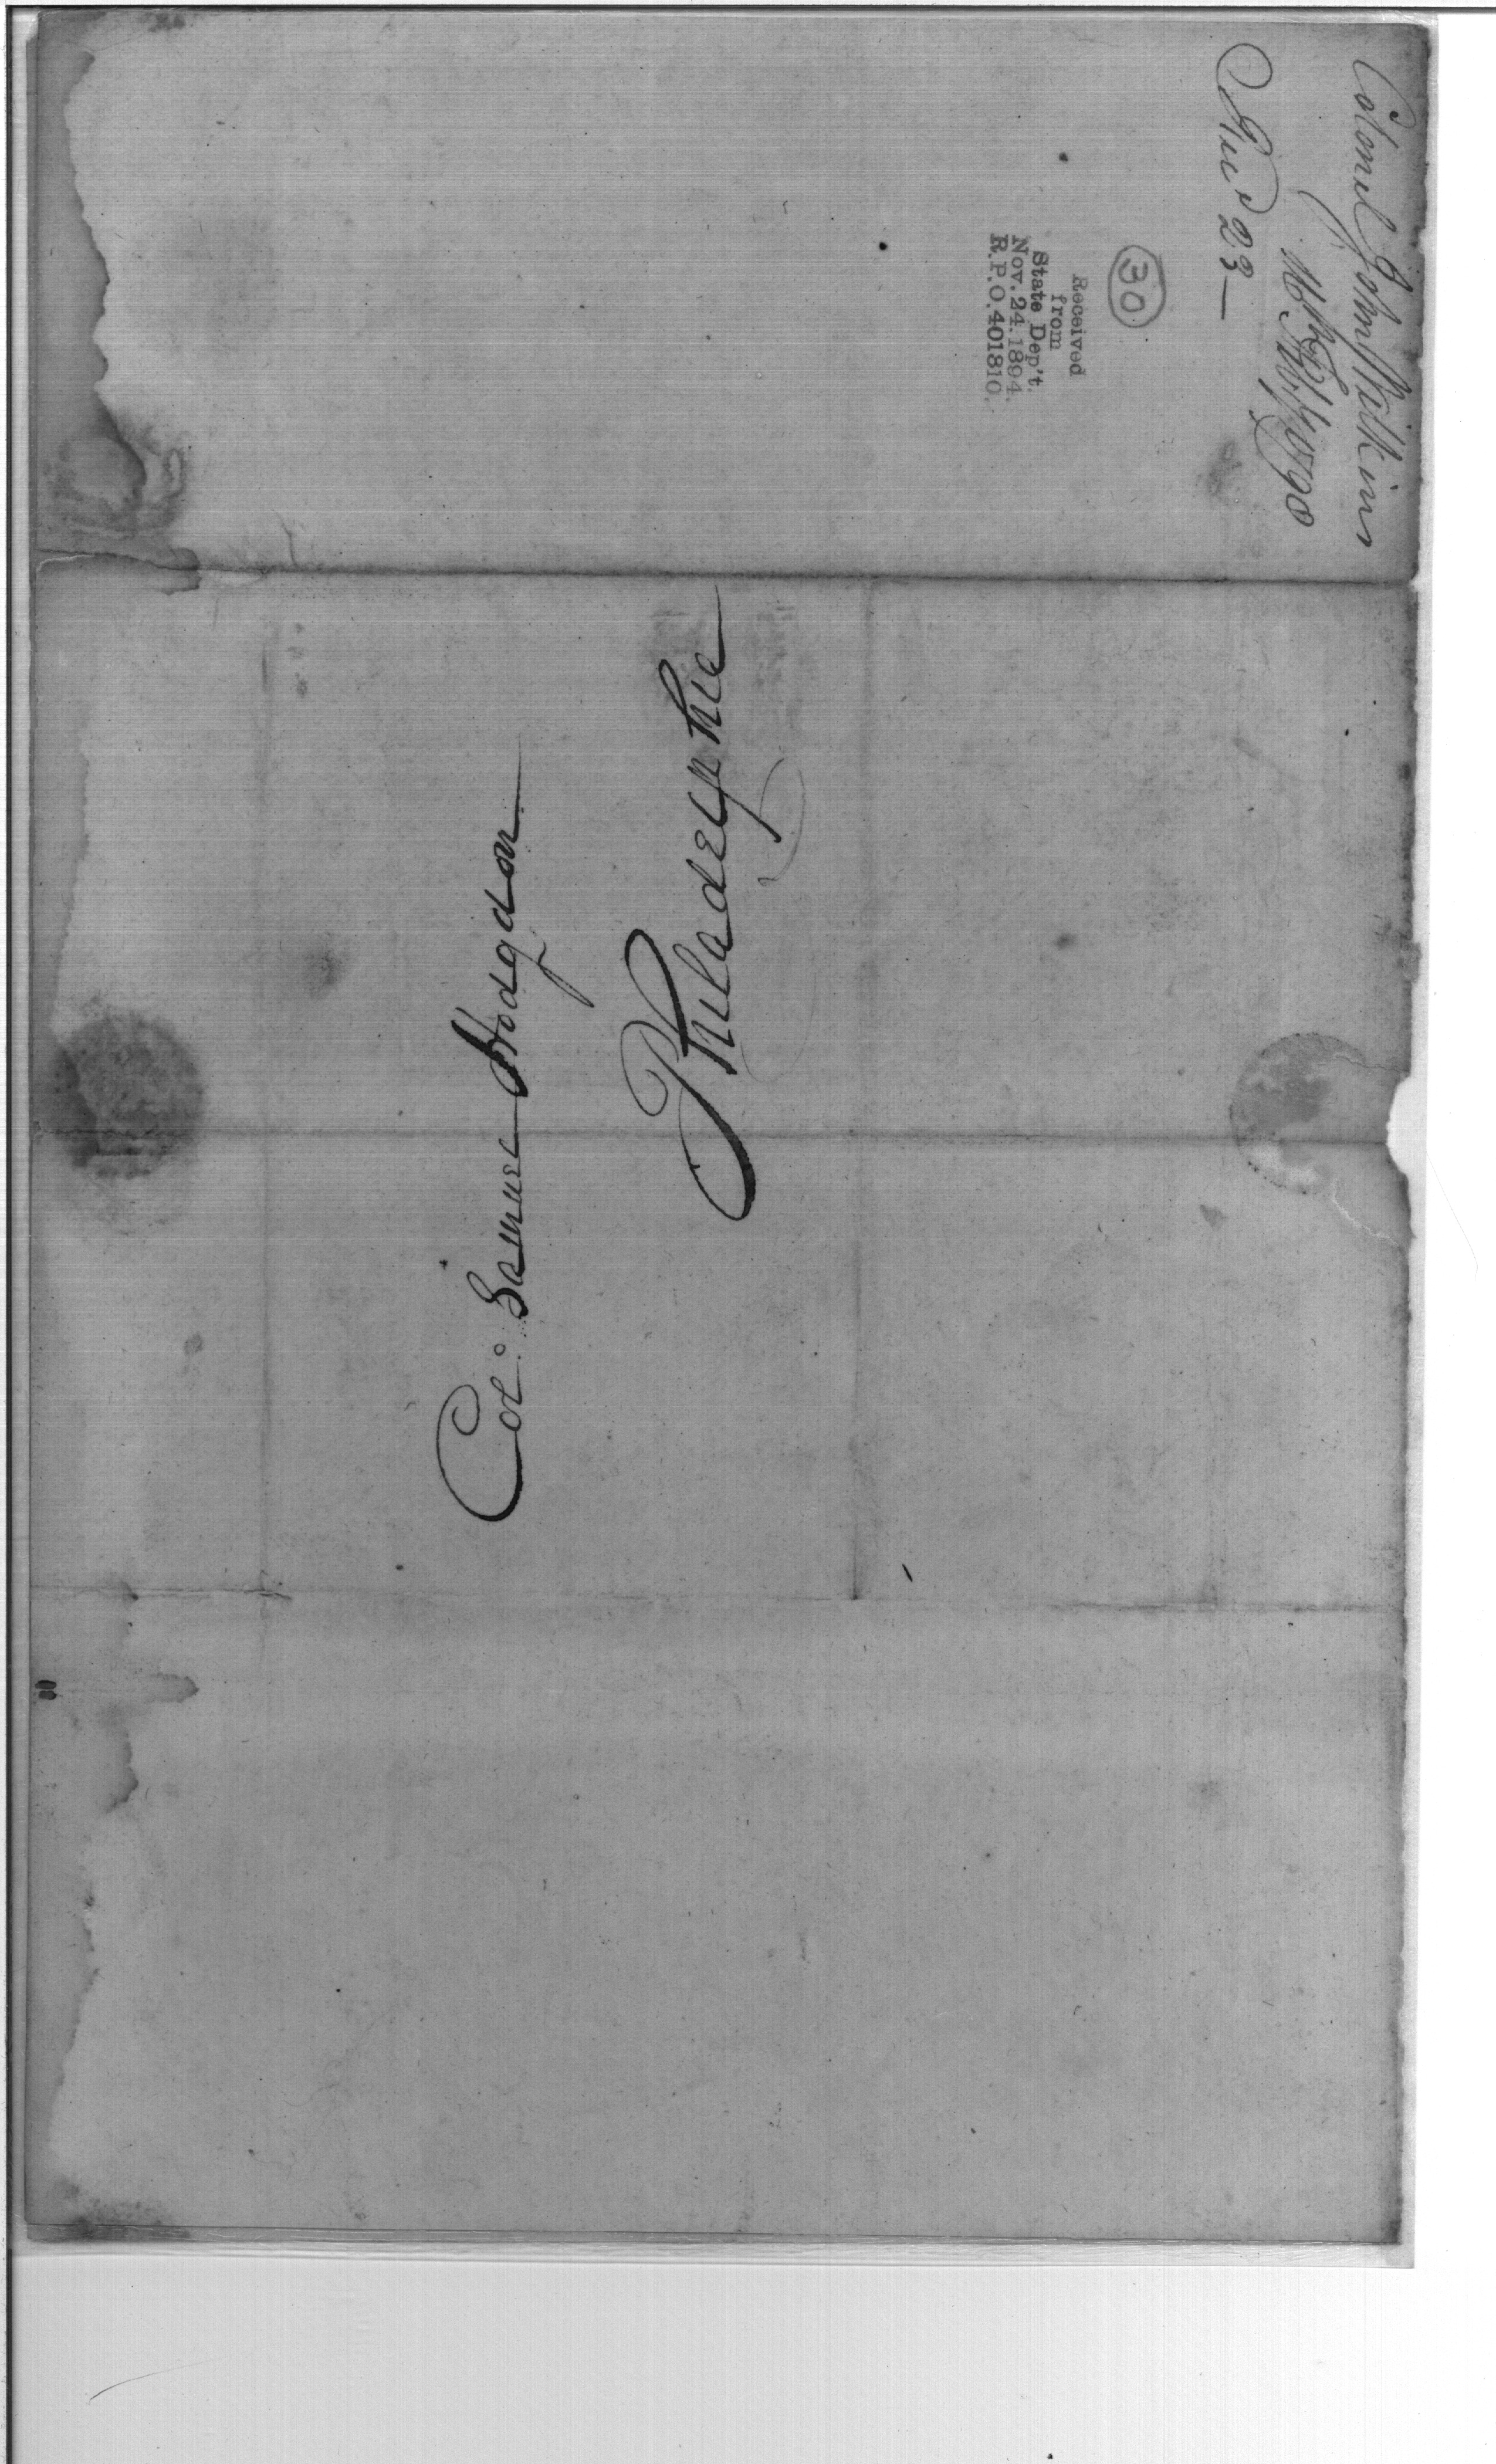 Colonel John Wilkins
1798
Rec'd 23—
30
Received
from
State Dep't.
Nov. 24. 1894.
R.P.O. 401810.
Col: Samuel Hodgdon
Philadelphia